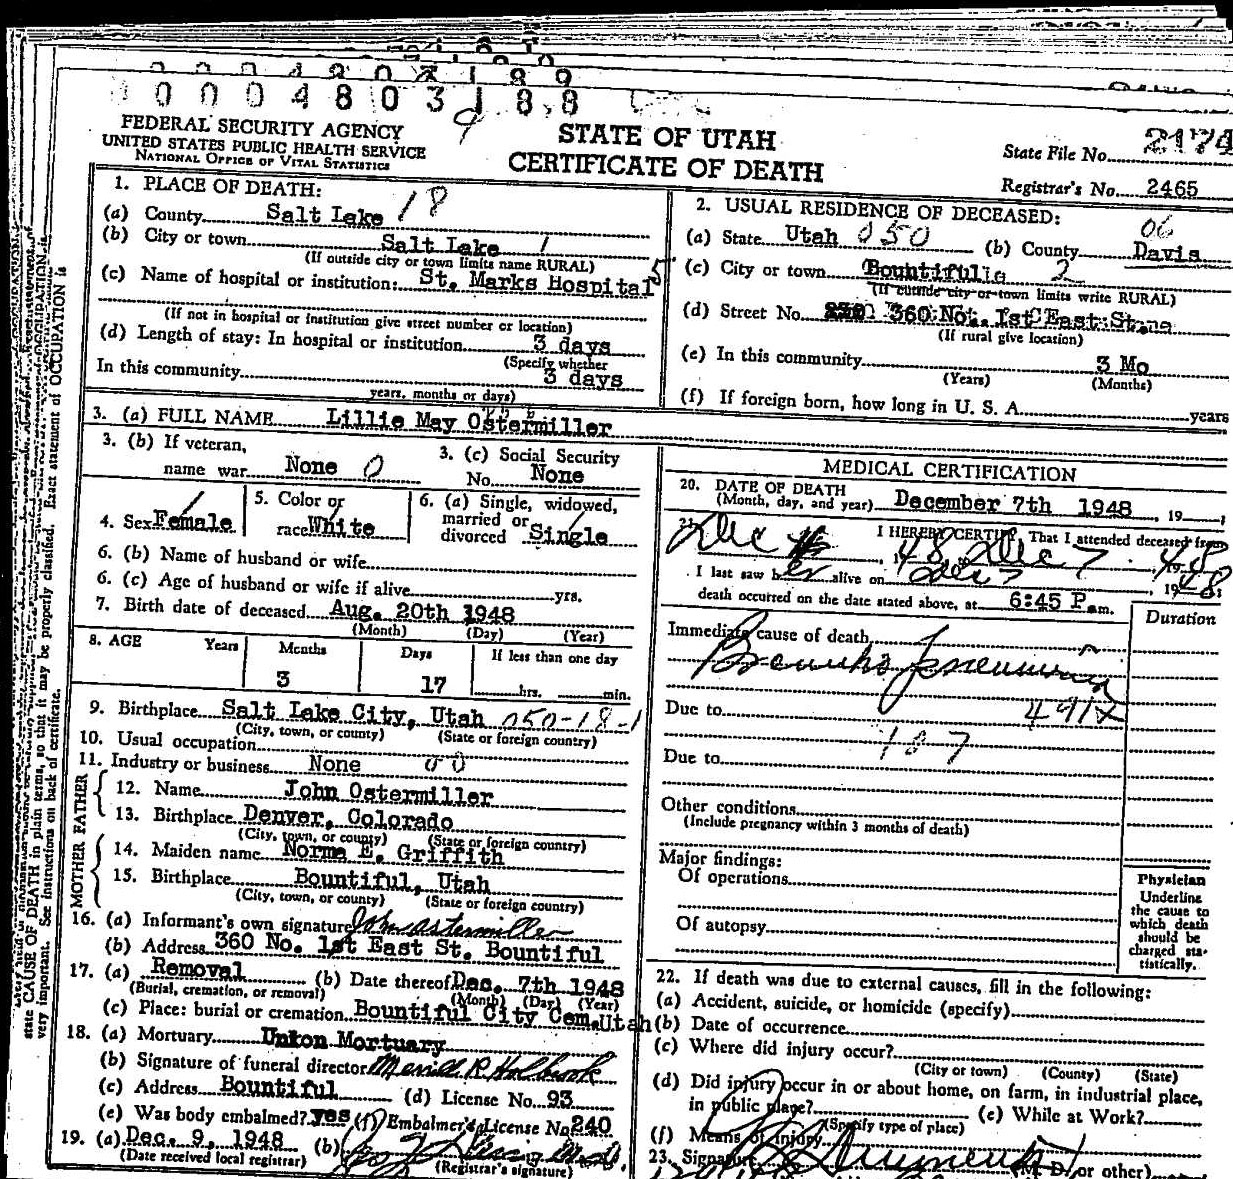 0 0 0 4 8 0 3 1 8 8
9
FEDERAL SECURITY AGENCY
UNITED STATES PUBLIC HEALTH SERVICE
NATIONAL OFFICE OF VITAL STATISTICS
STATE OF UTAH
CERTIFICATE OF DEATH
State File No. 2174
Registrar's No. 2465
1. PLACE OF DEATH: 18
(a) County Salt Lake
(b) City or town Salt Lake 1
(If outside city or town limits name RURAL)
(c) Name of hospital or institution: St. Marks Hospital 5
(If not in hospital or institution give street number or location)
(d) Length of stay: In hospital or institution 3 days
(Specify whether
In this community 3 days
years, months or days)
2. USUAL RESIDENCE OF DECEASED:
(a) State Utah 050 (b) County Davis 06
(c) City or town Bountiful 2
(If outside city or town limits write RURAL)
(d) Street No. 360 No. 1st East St.
(If rural give location)
(e) In this community 3 Mo
(Years) (Months)
(f) If foreign born, how long in U. S. A. years
3. (a) FULL NAME Lillie May Ostermiller
3. (b) If veteran, name war None 0
3. (c) Social Security No. None
4. Sex Female
5. Color or race White
6. (a) Single, widowed, married or divorced Single
6. (b) Name of husband or wife
6. (c) Age of husband or wife if alive yrs.
7. Birth date of deceased Aug. 20th 1948
(Month) (Day) (Year)
8. AGE Years Months Days If less than one day
3 17 hrs. min.
9. Birthplace Salt Lake City, Utah 050-18-1
(City, town, or county) (State or foreign country)
10. Usual occupation
11. Industry or business None 00
FATHER
12. Name John Ostermiller
13. Birthplace Denver, Colorado
(City, town, or county) (State or foreign country)
MOTHER
14. Maiden name Norma E. Griffith
15. Birthplace Bountiful, Utah
(City, town, or county) (State or foreign country)
16. (a) Informant's own signature John Ostermiller
(b) Address 360 No. 1st East St. Bountiful
17. (a) Removal (b) Date thereof Dec. 7th 1948
(Burial, cremation, or removal) (Month) (Day) (Year)
(c) Place: burial or cremation Bountiful City Cem. Utah
18. (a) Mortuary Union Mortuary
(b) Signature of funeral director Merrill R Holbrook
(c) Address Bountiful (d) License No. 93
(e) Was body embalmed? yes (f) Embalmer's License No. 240
19. (a) Dec. 9, 1948 (b)
(Date received local registrar) (Registrar's signature)
MEDICAL CERTIFICATION
20. DATE OF DEATH
(Month, day, and year) December 7th 1948, 19
21. I HEREBY CERTIFY, That I attended deceased from
Dec 48 Dec 7 48
I last saw her alive on Dec 7, 1948;
death occurred on the date stated above, at 6:45 P.m.
Duration
Immediate cause of death
Broncho pneumonia
Due to 491X
107
Due to
Other conditions
(Include pregnancy within 3 months of death)
Major findings:
Of operations
Of autopsy
Physician
Underline
the cause to
which death
should be
charged sta-
tistically.
22. If death was due to external causes, fill in the following:
(a) Accident, suicide, or homicide (specify)
(b) Date of occurrence
(c) Where did injury occur?
(City or town) (County) (State)
(d) Did injury occur in or about home, on farm, in industrial place,
in public place? (e) While at Work?
(Specify type of place)
(f) Means of injury
23. Signature (M. D. or other)
state CAUSE OF DEATH in plain terms, so that it may be properly classified. Exact statement of OCCUPATION is
very important. See instructions on back of certificate.